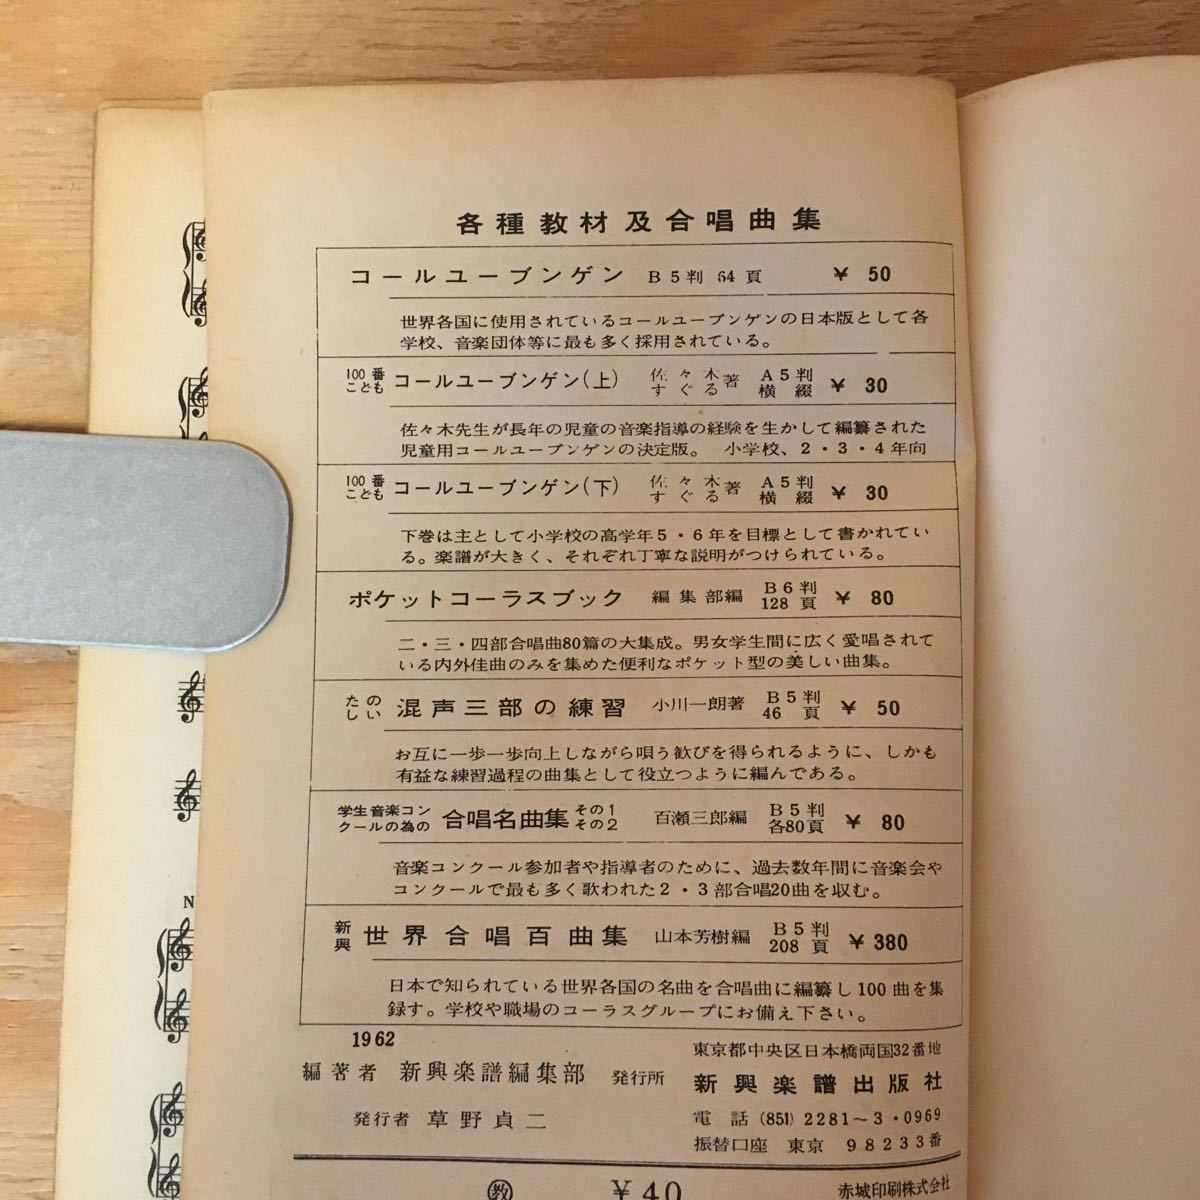 各種教材及合唱曲集
コールユーブンゲン B5判 64頁 ¥50
世界各国に使用されているコールユーブンゲンの日本版として各
学校、音楽団体等に最も多く採用されている。
100番こども コールユーブンゲン(上) 佐々木すぐる著 A5判横綴 ¥30
佐々木先生が長年の児童の音楽指導の経験を生かして編纂された
児童用コールユーブンゲンの決定版。 小学校、2・3・4年向
100番こども コールユーブンゲン(下) 佐々木すぐる著 A5判横綴 ¥30
下巻は主として小学校の高学年5・6年を目標として書かれてい
る。楽譜が大きく、それぞれ丁寧な説明がつけられている。
ポケットコーラスブック 編集部編 B6判128頁 ¥80
二・三・四部合唱曲80篇の大集成。男女学生間に広く愛唱されて
いる内外佳曲のみを集めた便利なポケット型の美しい曲集。
たのしい 混声三部の練習 小川一朗著 B5判46頁 ¥50
お互に一歩一歩向上しながら唄う歓びを得られるように、しかも
有益な練習過程の曲集として役立つように編んである。
学生音楽コンクールの為の 合唱名曲集 その1その2 百瀬三郎編 B5判各80頁 ¥80
音楽コンクール参加者や指導者のために、過去数年間に音楽会や
コンクールで最も多く歌われた2・3部合唱20曲を収む。
新興 世界合唱百曲集 山本芳樹編 B5判208頁 ¥380
日本で知られている世界各国の名曲を合唱曲に編纂し100曲を集
録す。学校や職場のコーラスグループにお備え下さい。
1962
編著者 新興楽譜編集部
発行者 草野貞二
東京都中央区日本橋両国32番地
発行所 新興楽譜出版社
電話(851)2281~3・0969
振替口座 東京 98233番
教 ¥40
赤城印刷株式会社
N